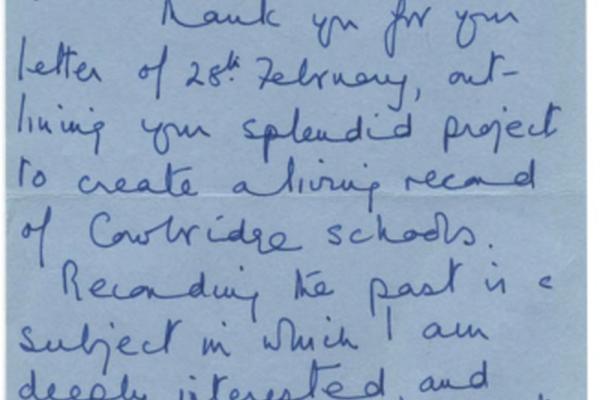 Thank you for your
letter of 28th February, out-
lining your splendid project
to create a living record
of Cowbridge schools.
Recording the past is a
subject in which I am
deeply interested, and